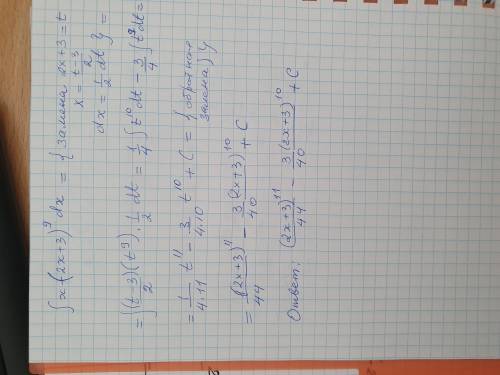 ∫x(2x+3)⁹dx = { замена 2x+3=t
x = (t-3)/2
dx = 1/2 dt } =
= ∫((t-3)(t⁹))/2 · 1/2 dt = 1/4 ∫t¹⁰dt - 3/4 ∫t⁹dt =
= 1/(4·11) t¹¹ - 3/(4·10) t¹⁰ + C = { обратная
замена } =
= (2x+3)¹¹/44 - 3(2x+3)¹⁰/40 + C
Ответ: (2x+3)¹¹/44 - 3(2x+3)¹⁰/40 + C